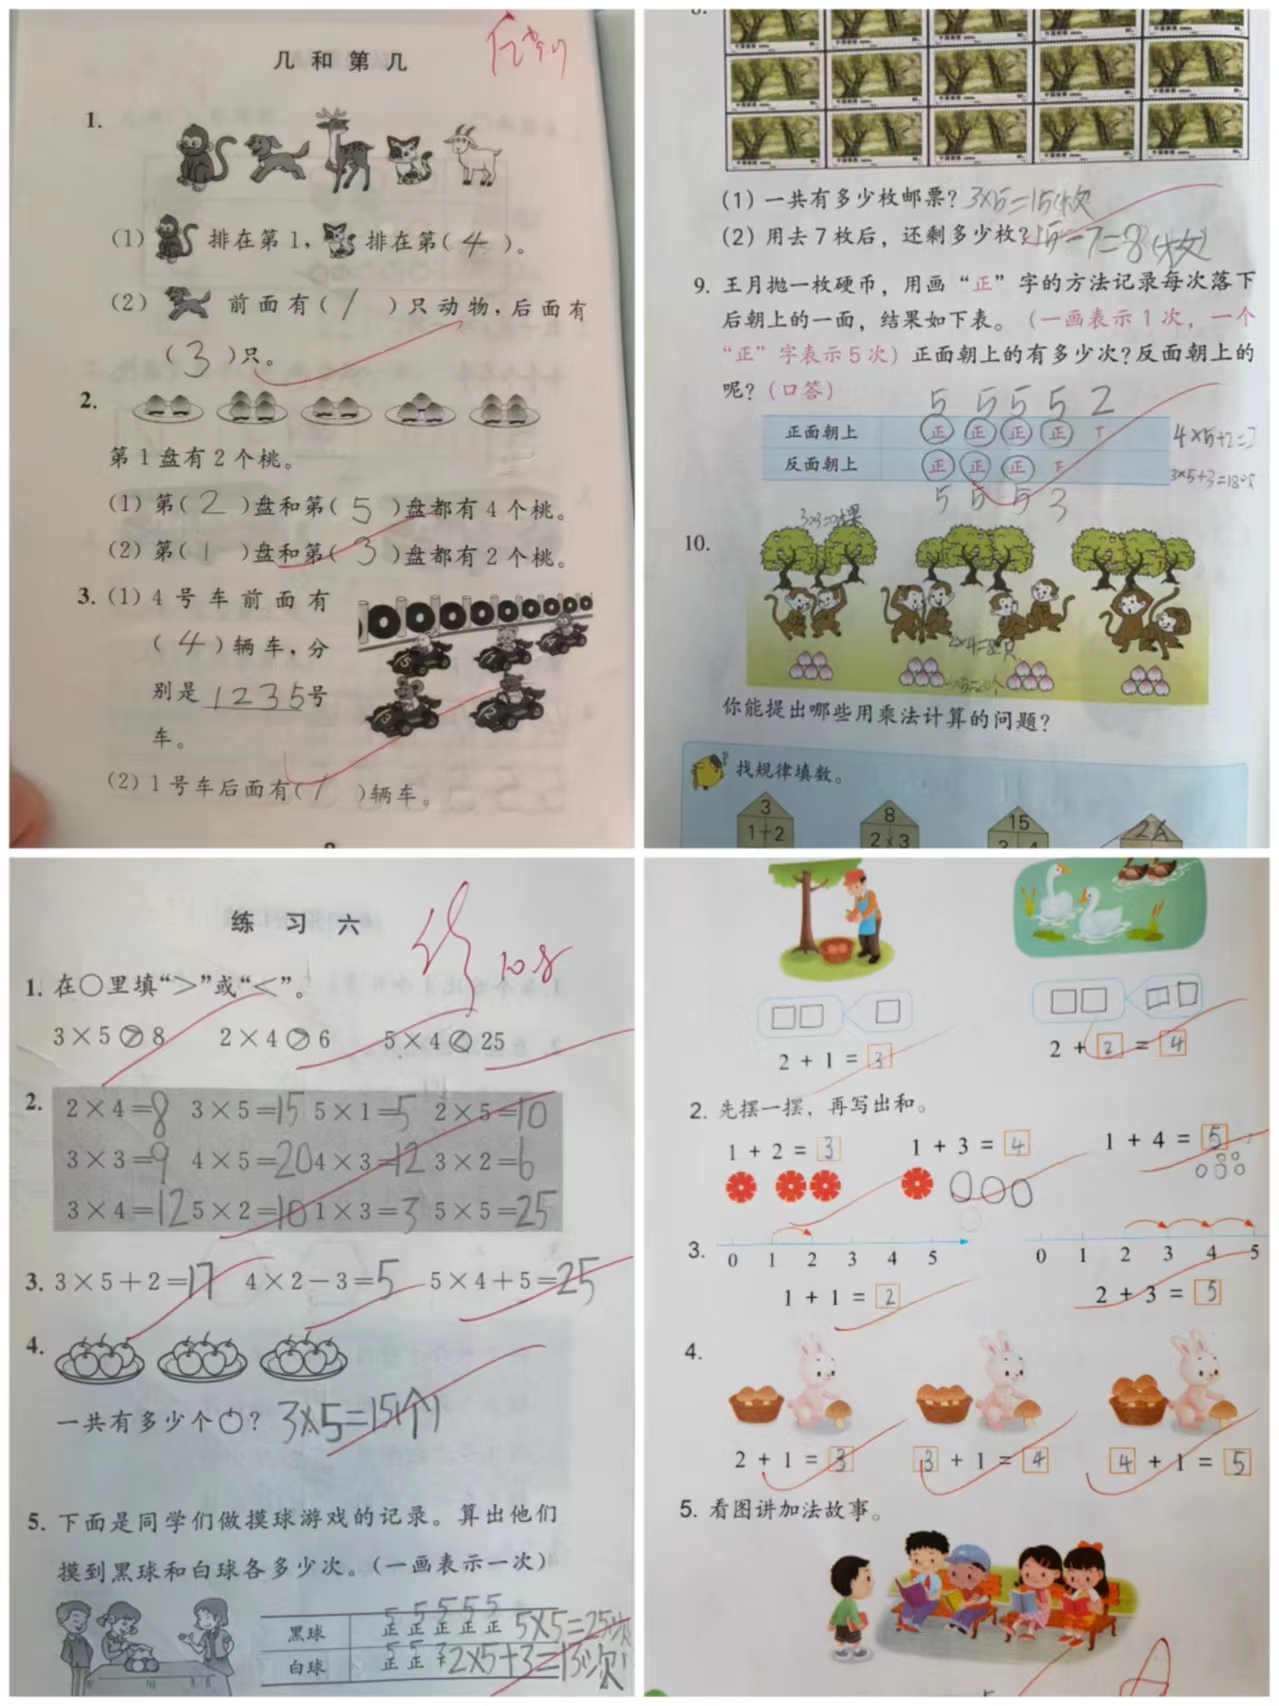 几和第几
1.
(1) 排在第1， 排在第( 4 )。
(2) 前面有( / )只动物，后面有
( 3 )只。
2.
第1盘有2个桃。
(1) 第( 2 )盘和第( 5 )盘都有4个桃。
(2) 第( 1 )盘和第( 3 )盘都有2个桃。
3. (1) 4号车前面有
( 4 )辆车，分
别是 1235 号
车。
(2) 1号车后面有( / )辆车。
(1) 一共有多少枚邮票？3×5=15(枚)
(2) 用去7枚后，还剩多少枚？15-7=8(枚)
9. 王月抛一枚硬币，用画“正”字的方法记录每次落下
后朝上的一面，结果如下表。（一画表示1次，一个
“正”字表示5次）正面朝上的有多少次？反面朝上的
呢？（口答）
5 5 5 5 2
正面朝上 正 正 正 正
反面朝上 正 正 正
5 5 5 3
10.
你能提出哪些用乘法计算的问题？
找规律填数。
3 8 15 24
1+2 2×3
练习六
1. 在○里填“>”或“<”。
3×5 > 8 2×4 > 6 5×4 < 25
2. 2×4=8 3×5=15 5×1=5 2×5=10
3×3=9 4×5=20 4×3=12 3×2=6
3×4=12 5×2=10 1×3=3 5×5=25
3. 3×5+2=17 4×2-3=5 5×4+5=25
4.
一共有多少个 ？ 3×5=15(个)
5. 下面是同学们做摸球游戏的记录。算出他们
摸到黑球和白球各多少次。（一画表示一次）
5 5 5 5 5
黑球 正 正 正 正 正 5×5=25次
白球 正 正 2×5+3=13次
2+1=3
2+2=4
2. 先摆一摆，再写出和。
1+2=3 1+3=4 1+4=5
3.
0 1 2 3 4 5 0 1 2 3 4 5
1+1=2 2+3=5
4.
2+1=3 3+1=4 4+1=5
5. 看图讲加法故事。